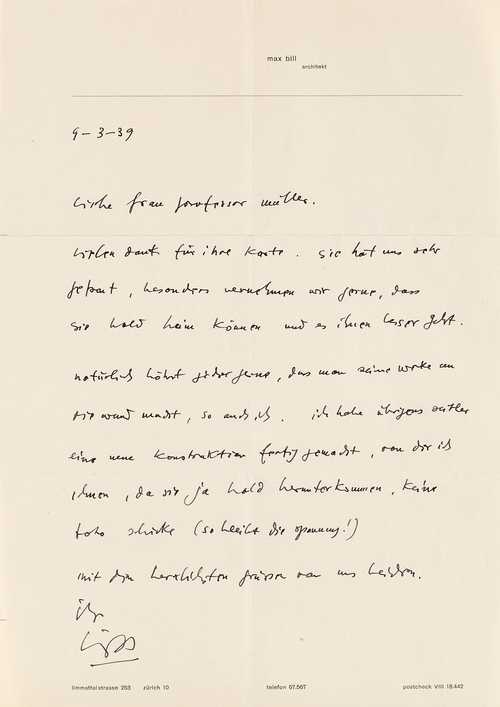 max bill
architekt
9-3-39
liebe frau professor müller.
vielen dank für ihre karte. sie hat uns sehr
gefreut, besonders vernehmen wir gerne, dass
sie bald heim können und es ihnen besser geht.
natürlich hört jeder gerne, dass man seine werke an
die wand macht, so auch ich. ich habe übrigens seither
eine neue konstruktion fertig gemacht, von der ich
ihnen, da sie ja bald herunterkommen, keine
foto schicke (so bleibt die spannung!)
mit den herzlichsten grüssen von uns beiden.
ihr
limmattalstrasse 253 zürich 10 telefon 67.567 postcheck VIII 18.442